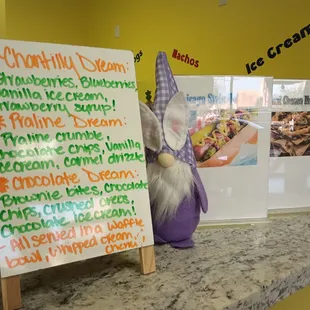 Chantilly Dream:
Strawberries, Blueberries,
Vanilla ice cream,
Strawberry syrup!
* Praline Dream:
Praline crumble,
chocolate chips, Vanilla
icecream, carmel drizzle
* Chocolate Dream:
Brownie bites, chocolate
chips, crushed oreos,
Chocolate Icecream!
- All served in a waffle
bowl, whipped cream,
cherry!
Nachos
Ice Cream